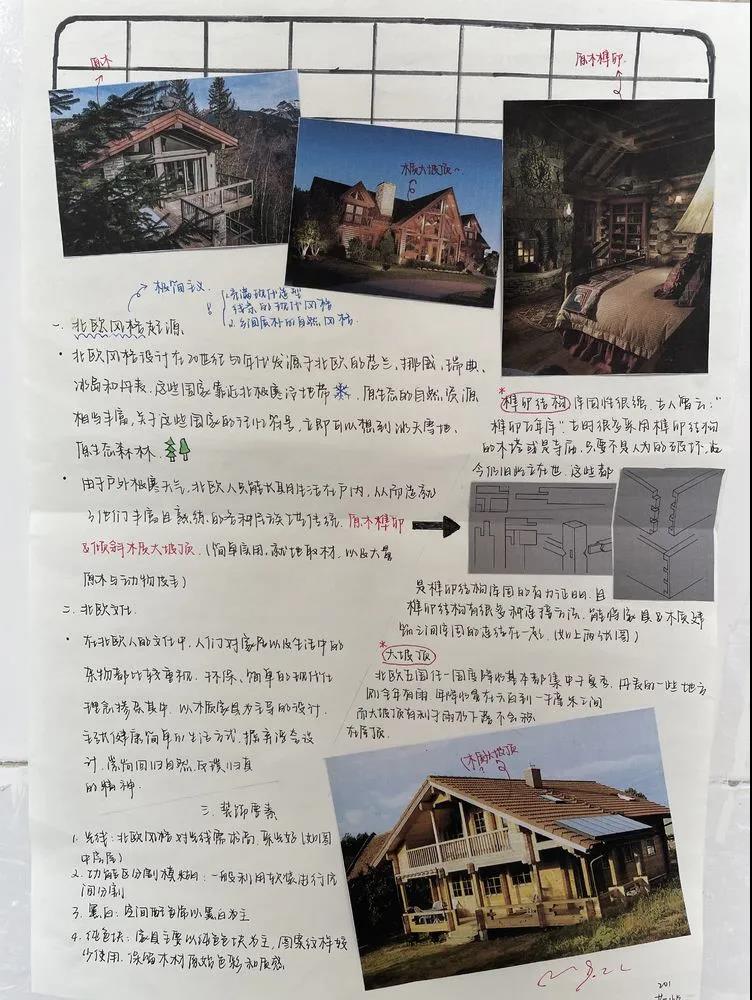 原木
原木榫卯
木质大坡顶
极简主义
1. 充满现代造型
线条的现代风格
2. 乡间质朴的自然风格
一、北欧风格起源
• 北欧风格设计在20世纪 年代发源于北欧的芬兰、挪威、瑞典、
冰岛和丹麦、这些国家靠近北极寒冷地带 原生态的自然资源
相当丰富,关于这些国家的 符号,立即可以想到冰天雪地、
原生态森林
• 由于户外极寒天气,北欧人只能长期生活在户内,从而造就
了他们丰富且熟练的各种民族工艺传统,原木榫卯
&倾斜木质大坡顶.(简单实用,就地取材,以及大量
原木与动物皮毛)
二、北欧文化
• 在北欧人的文化中,人们对家居以及生活中的
杂物都比较重视、环保、简单的现代化
理念掺杂其中,以木质家具为主导的设计、
主张健康简单的生活方式、摒弃 设
计、崇尚回归自然、反璞归真
的精神.
三、装饰要素
1. 光线:北欧风格对光线需求高,采光好(如图
中房屋)
2. 功能区分割模糊:一般利用软装进行空
间分割
3. 黑白:空间配色常以黑白为主
4. 纯色块:家具主要以纯色色块为主,图案纹样较
少使用,保留木材原始色彩和质感
* 榫卯结构 牢固性很强,古人 云:“
榫卯万年牢”古时很多采用榫卯结构
的木塔或是寺庙,只要不是人为的破坏,
今仍旧屹立在世,这些都
是榫卯结构牢固的有力证明,且
榫卯结构有很多种连接方法,能将家具&木质建
筑之间牢固的连结在一起,(如上两张图)
* 大坡顶
北欧五国任一国度降 基本都集中于夏季,丹麦的一些地方
则全年有雨,年降 在六百到一千毫米之间
而大坡顶有利于雨水下落不会
在屋顶.
木质大坡顶